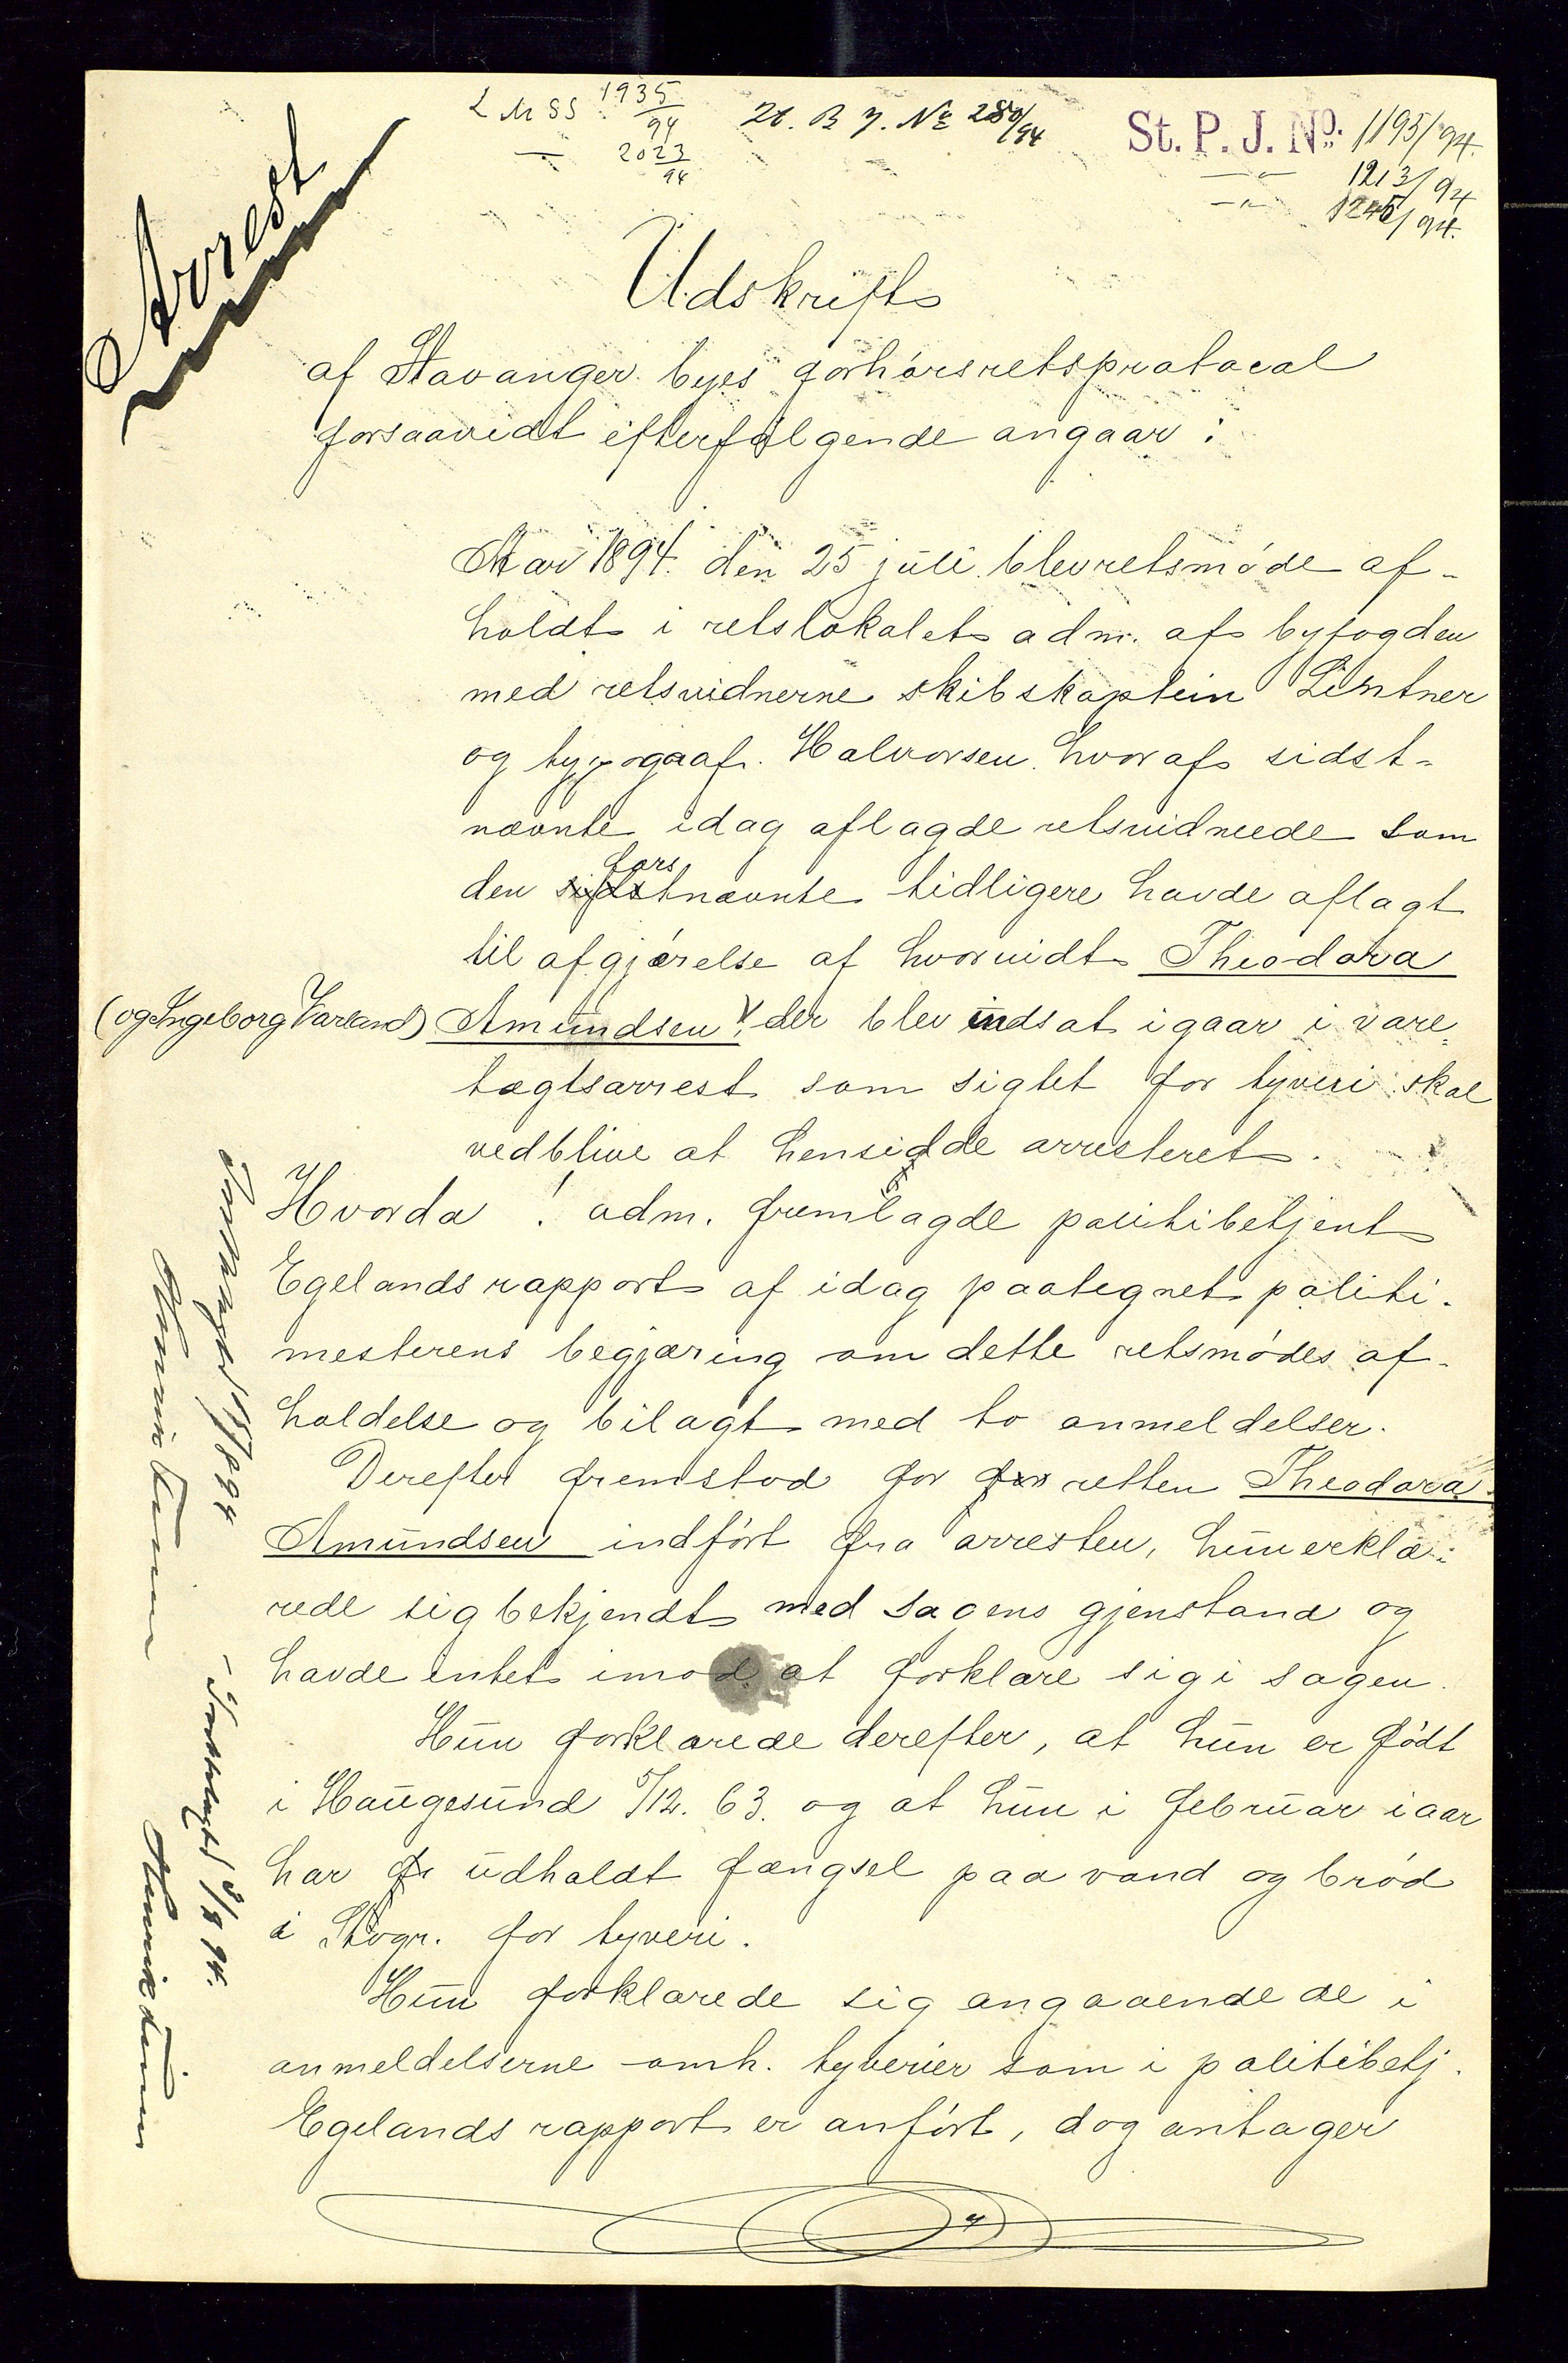 Arrest
L M SS 1935/94
— 2023/94
2t. B J. No 280/94
St. P. J. No. 1195/94.
— „ — 1213/94
— „ — 1245/94.
Udskrift
af Stavanger byes forhørsretsprotocol
forsaavidt efterfølgende angaar:
Aar 1894. den 25 juli blev retsmøde af-
holdt i retslokalet adm. af byfogden
med retsvidnerne skibskaptein Lintner
og typograf. Halvorsen hvoraf sidst-
nævnte idag aflagde retsvidneede som
den førstnævnte tidligere havde aflagt
til afgjørelse af hvorvidt Theodora
(og Ingeborg Varland) Amundsen der blev indsat igaar i vare-
tægtsarrest som sigtet for tyveri skal
vedblive at hensidde arresteret.
Hvorda! adm. fremlagde politibetjent
Egelands rapport af idag paategnet politi-
mesterens begjæring om dette retsmødes af-
holdelse og bilagt med to anmeldelser.
Derefter fremstod for for retten Theodora
Amundsen indført fra arresten, hun erklæ-
rede sig bekjendt med sagens gjenstand og
havde intet imod at forklare sig i sagen.
Hun forklarede derefter, at hun er født
i Haugesund 5/12. 63. og at hun i februar iaar
har fr udholdt fængsel paa vand og brød
i Stvgr. for tyveri.
Hun forklarede sig angaaende de i
anmeldelserne omh. tyverier som i politibetj.
Egelands rapport er anført, dog antager
1894
- Fremlagt 8/8 94.